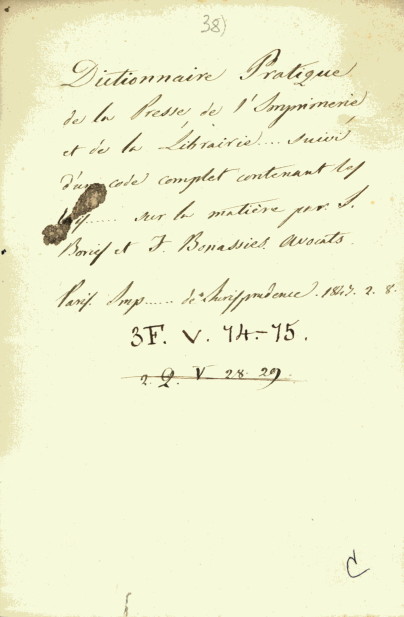 38)
Dictionnaire Pratique
de la Presse, de l'Imprimerie
et de la Librairie.... suivi
d'un code complet contenant les
...... sur la matière par J.
Bories et F. Bonassies avocats.
Paris. Imp...... de Jurisprudence. 1847. 2. 8.
3F. V. 74-75.
2. Q. V 28. 29.
C